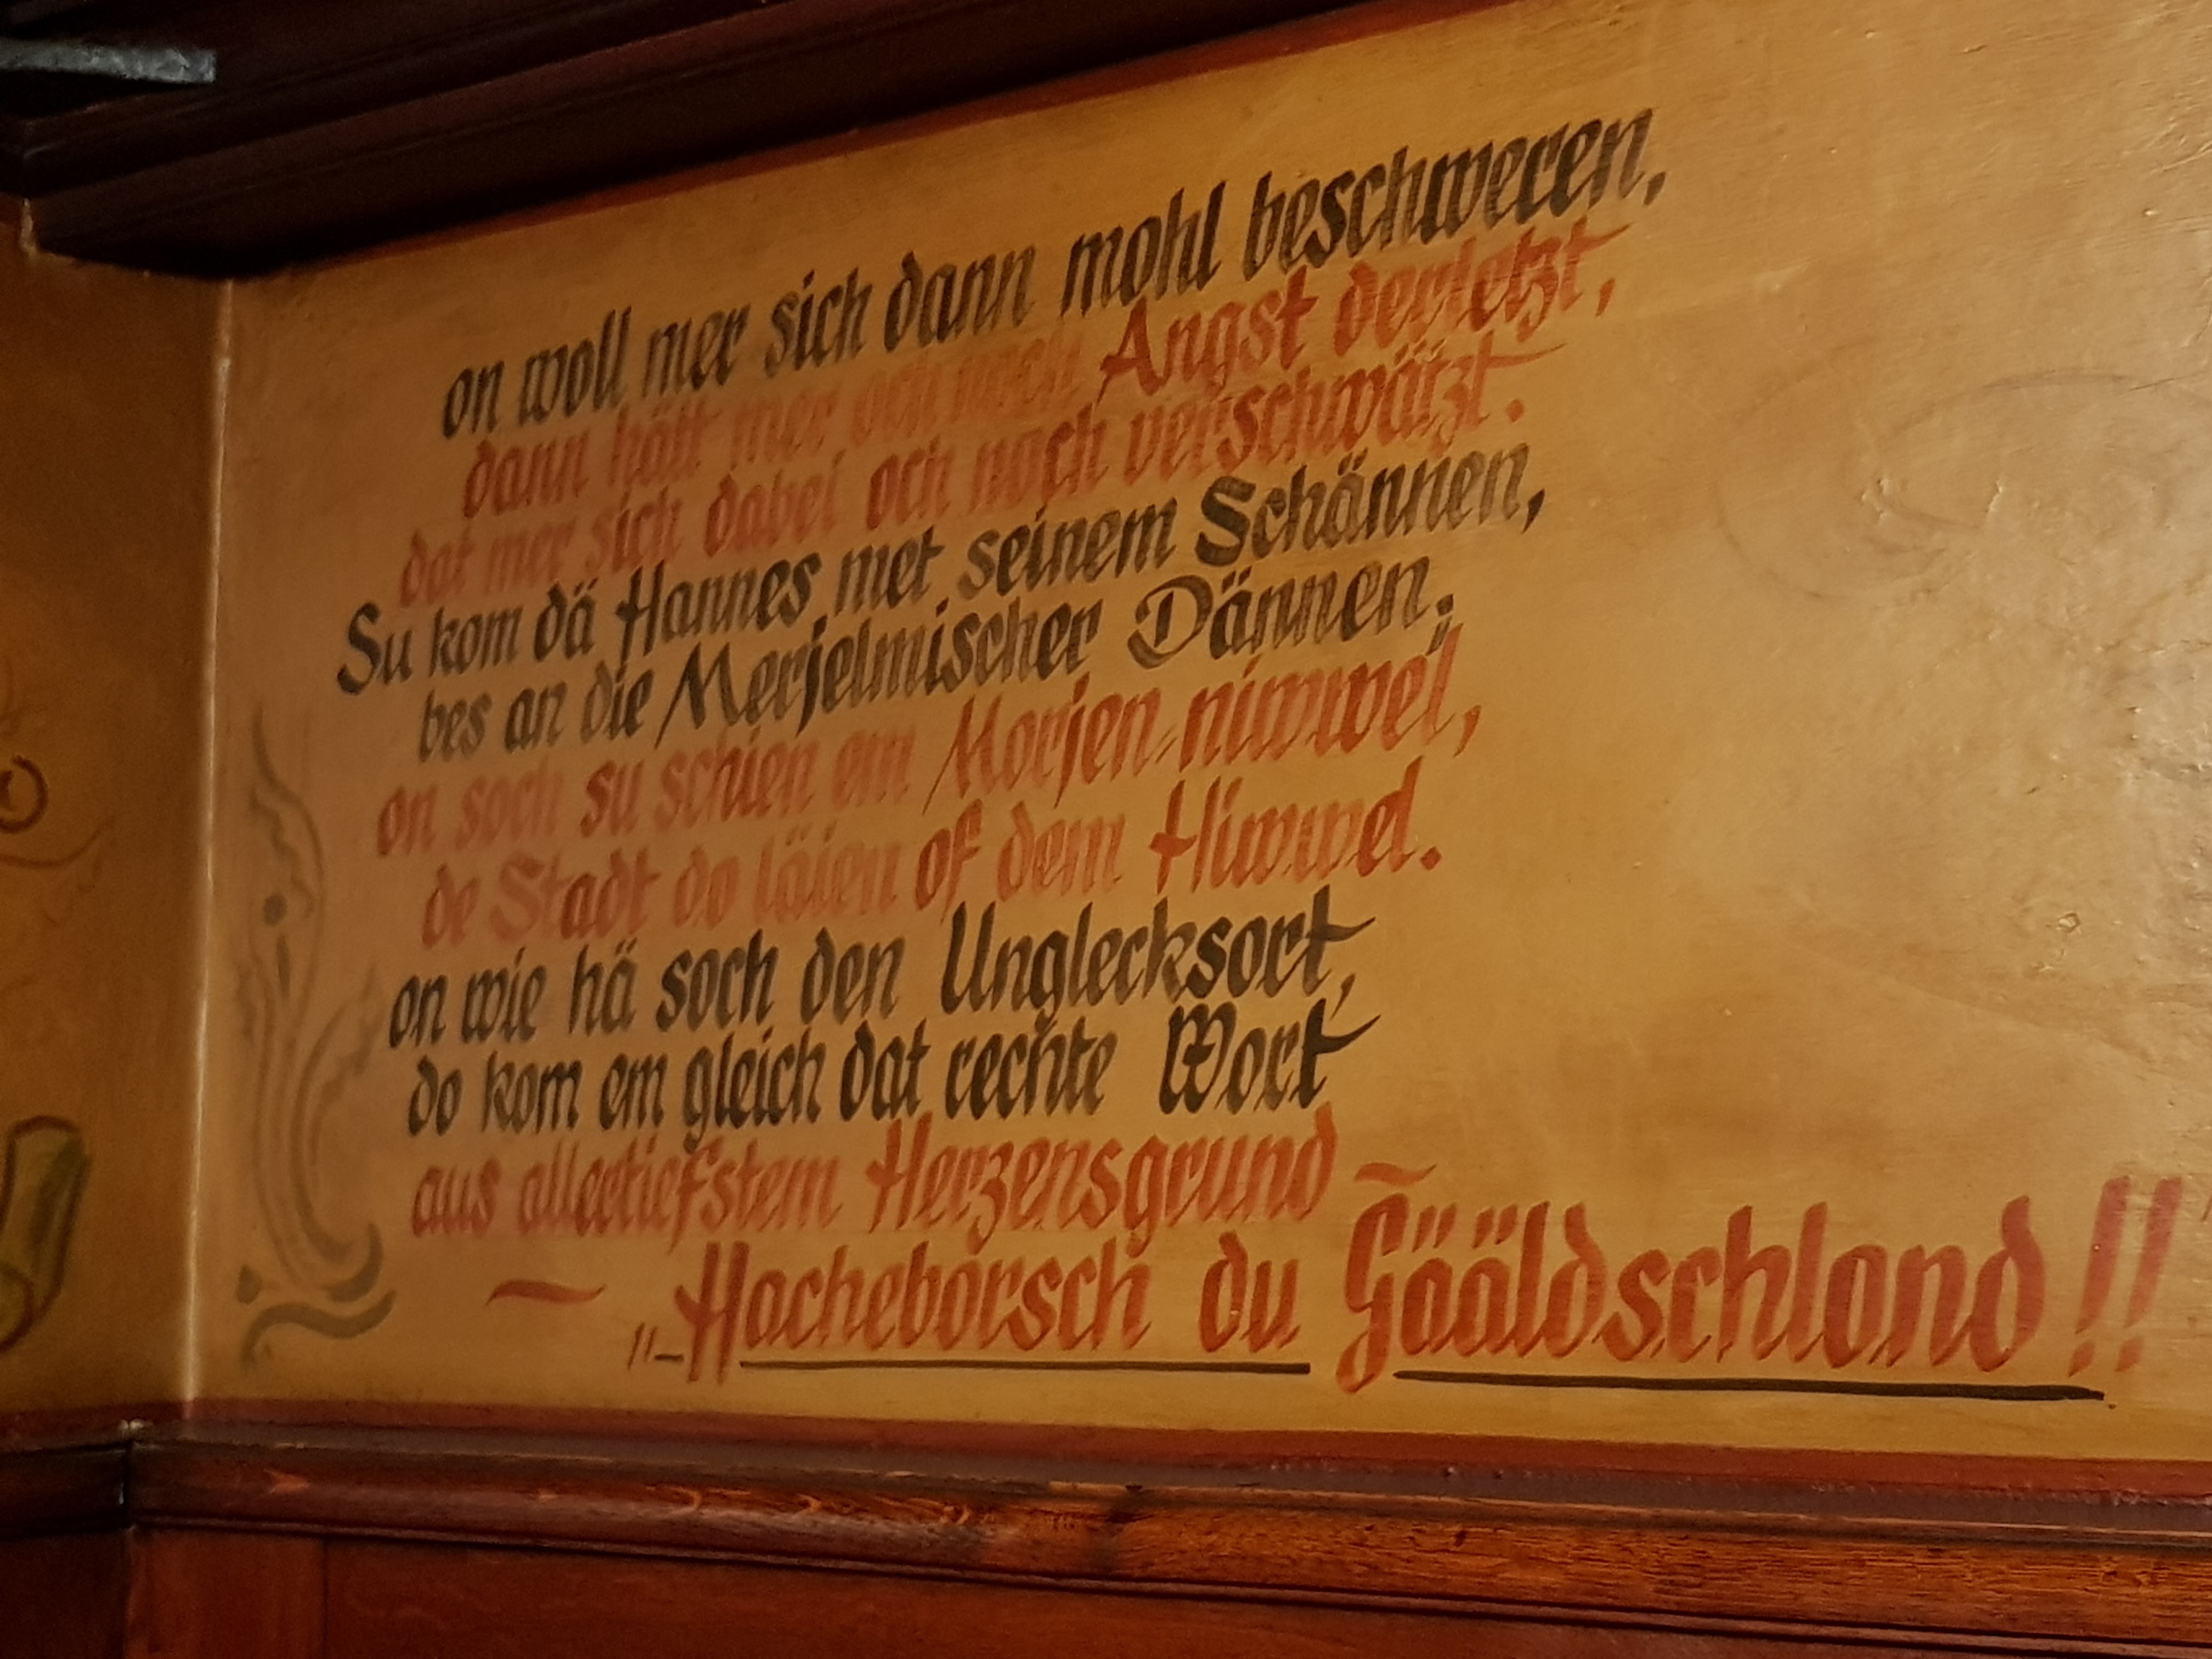 on woll mer sich dann mohl beschweren,
dann hätt mer och noch Angst derletzt,
dat mer sich dabei och noch verschwätzt.
Su kom dä Hannes met seinem Schännen,
bes an die Merjelmischer Dännen,
on soch su schien em Morjen-niwwel,
de Stadt do läien of dem Hiwwel.
on wie hä soch den Unglecksort,
do kom em gleich dat rechte Wort
aus allertiefstem Herzensgrund –
– „-Hacheborsch du Gääldschlond!!